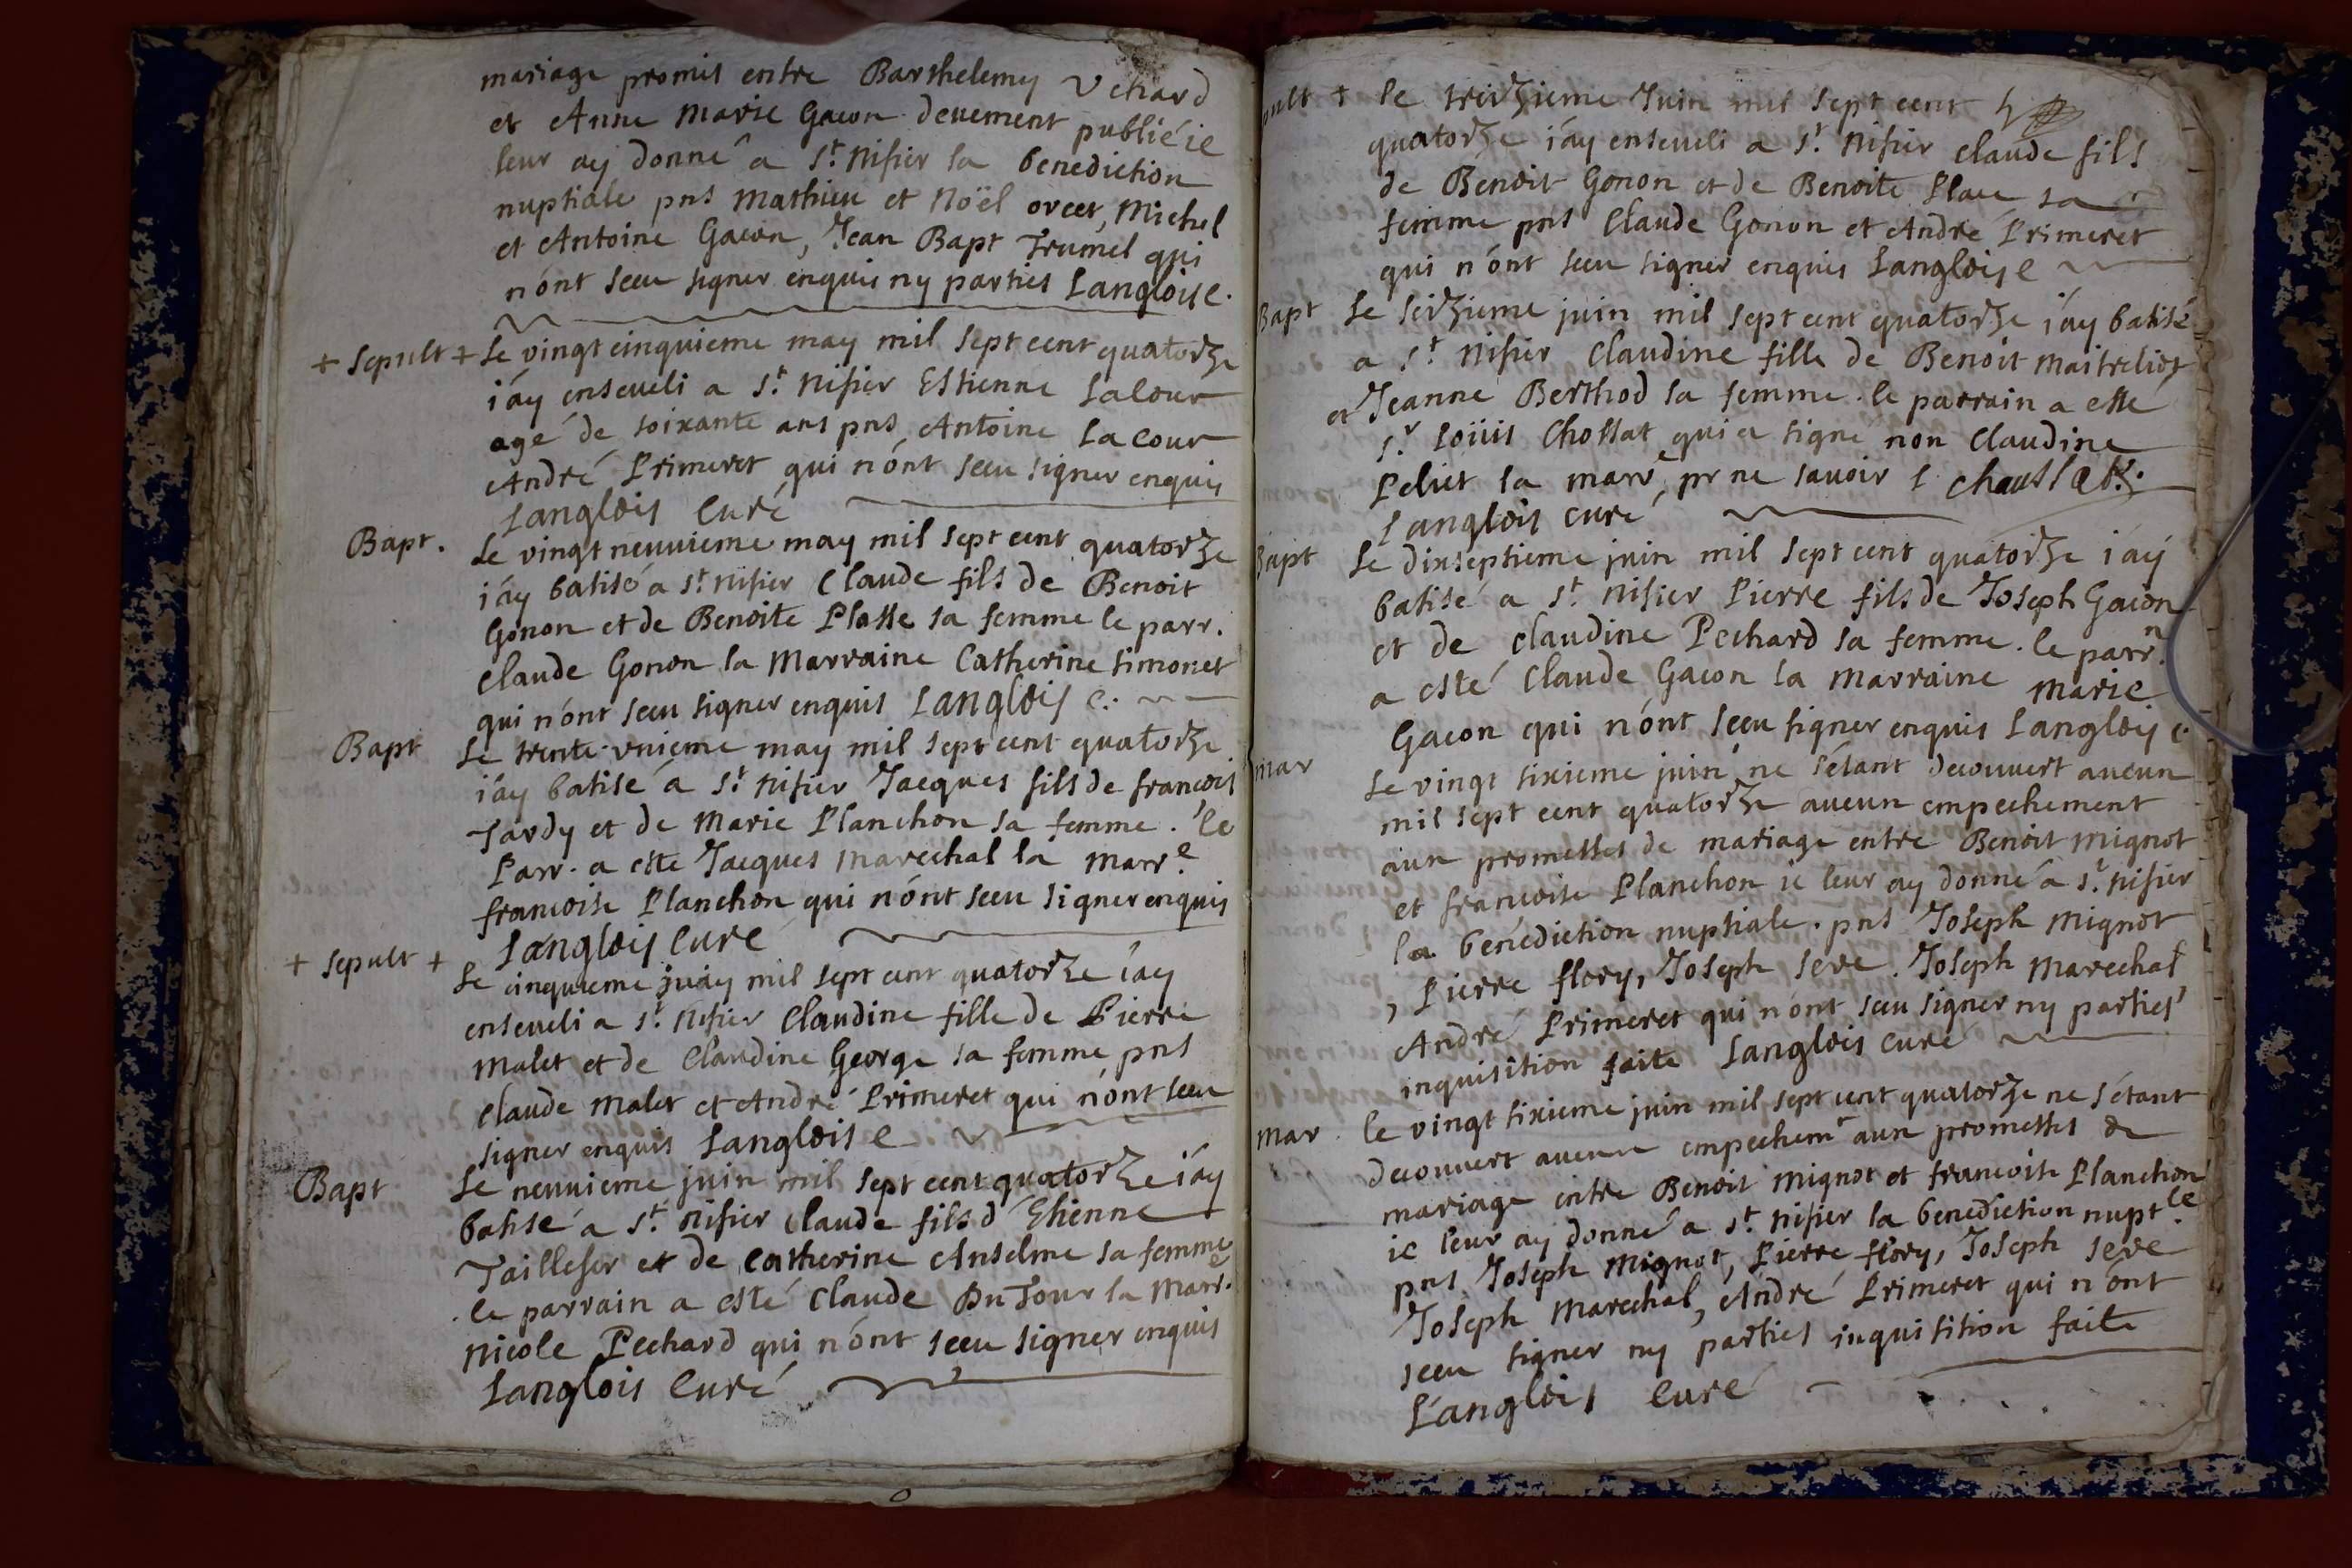 mariage promis entre Barthelemy Vchard
et Anne Marie Gacon deuement publié ie
leur ay donné a St. Nisier la benediction
nuptiale pns Mathieu et Noël orcet, Michel
et Antoine Gacon, Jean Bapt Trumel qui
n'ont sceu signer enquis ny parties Langlois c.
+ Sepult + Le vingt cinquieme may mil sept cent quatorze
i'ay enseveli a St. Nisier Estienne Lacour
agé de soixante ans pns Antoine Lacour
André Primeret qui n'ont sceu signer enquis
Langlois Curé
Bapt. Le vingt neuvieme may mil sept cent quatorze
i'ay batisé a St Nisier Claude fils de Benoit
Gonon et de Benoite Plasse sa femme le parr.
Claude Gonon la Marraine Catherine Simonet
qui n'ont sceu signer enquis Langlois c.
Bapt Le trente-vnieme may mil sept cent quatorze
i'ay batisé a St. Nisier Jacques fils de francois
Tardy et de Marie Planchon sa femme. le
Parr. a este Jacques Marechal la Marr.e
francoise Planchon qui n'ont sceu signer enquis
Langlois Curé
+ Sepult + Le cinquieme mil sept cent quatorze i'ay
enseveli a St. Nisier Claudine fille de Pierre
Malet et de Claudine George sa femme pns
Claude Malet et André Primeret qui n'ont sceu
signer enquis Langlois C
Bapt Le neuvieme juin mil sept cent quatorze i'ay
batisé a St. Nisier Claude fils d'Etienne
Taillefer et de Catherine Anselme sa femme
le parrain a esté Claude DuTour la Marr.e
Nicole Pechard qui n'ont sceu signer enquis
Langlois Curé
+ le treizieme Juin mil sept cent
quatorze i'ay enseveli a St. Nisier Claude fils
de Benoit Gonon et de Benoite Place sa
femme pns Claude Gonon et André Primeret
qui n'ont sceu signer enquis Langlois C
Bapt Le seizieme juin mil sept cent quatorze i'ay batisé
a St. Nisier Claudine fille de Benoit Maitreliot
et Jeanne Berthod sa femme. le parrain a esté
Sr Loüis Chossat qui a signé non Claudine
Peliet la marr.e pr ne savoir
Langlois curé
Bapt Le dixseptieme juin mil sept cent quatorze i'ay
batisé a St. Nisier Pierre fils de Joseph Gacon
et de Claudine Pechard sa femme. le parr.n
a esté Claude Gacon la Marraine Marie
Gacon qui n'ont sceu signer enquis Langlois c.
Mar Le vingt sixieme juin ne s'étant decouvert aucun
mil sept cent quatorze aucun empechement
aux promesses de mariage entre Benoit Mignot
et francoise Planchon ie leur ay donné a St. Nisier
la benediction nuptiale. pns Joseph Mignot
, Pierre flory, Joseph Seve. Joseph Marechal
André Primeret qui n'ont sceu signer ny parties
inquisition faite Langlois Curé
Mar. le vingt sixieme juin mil sept cent quatorze ne s'étant
decouvert aucun empechemt aux promesses de
mariage entre Benoit Mignot et francoise Planchon
ie leur ay donné a St. Nisier la benediction nupt.le
pns Joseph Mignot, Pierre flory, Joseph Seve
Joseph Marechal, André Primeret qui n'ont
sceu signer ny parties inquisition faite
Langlois Curé